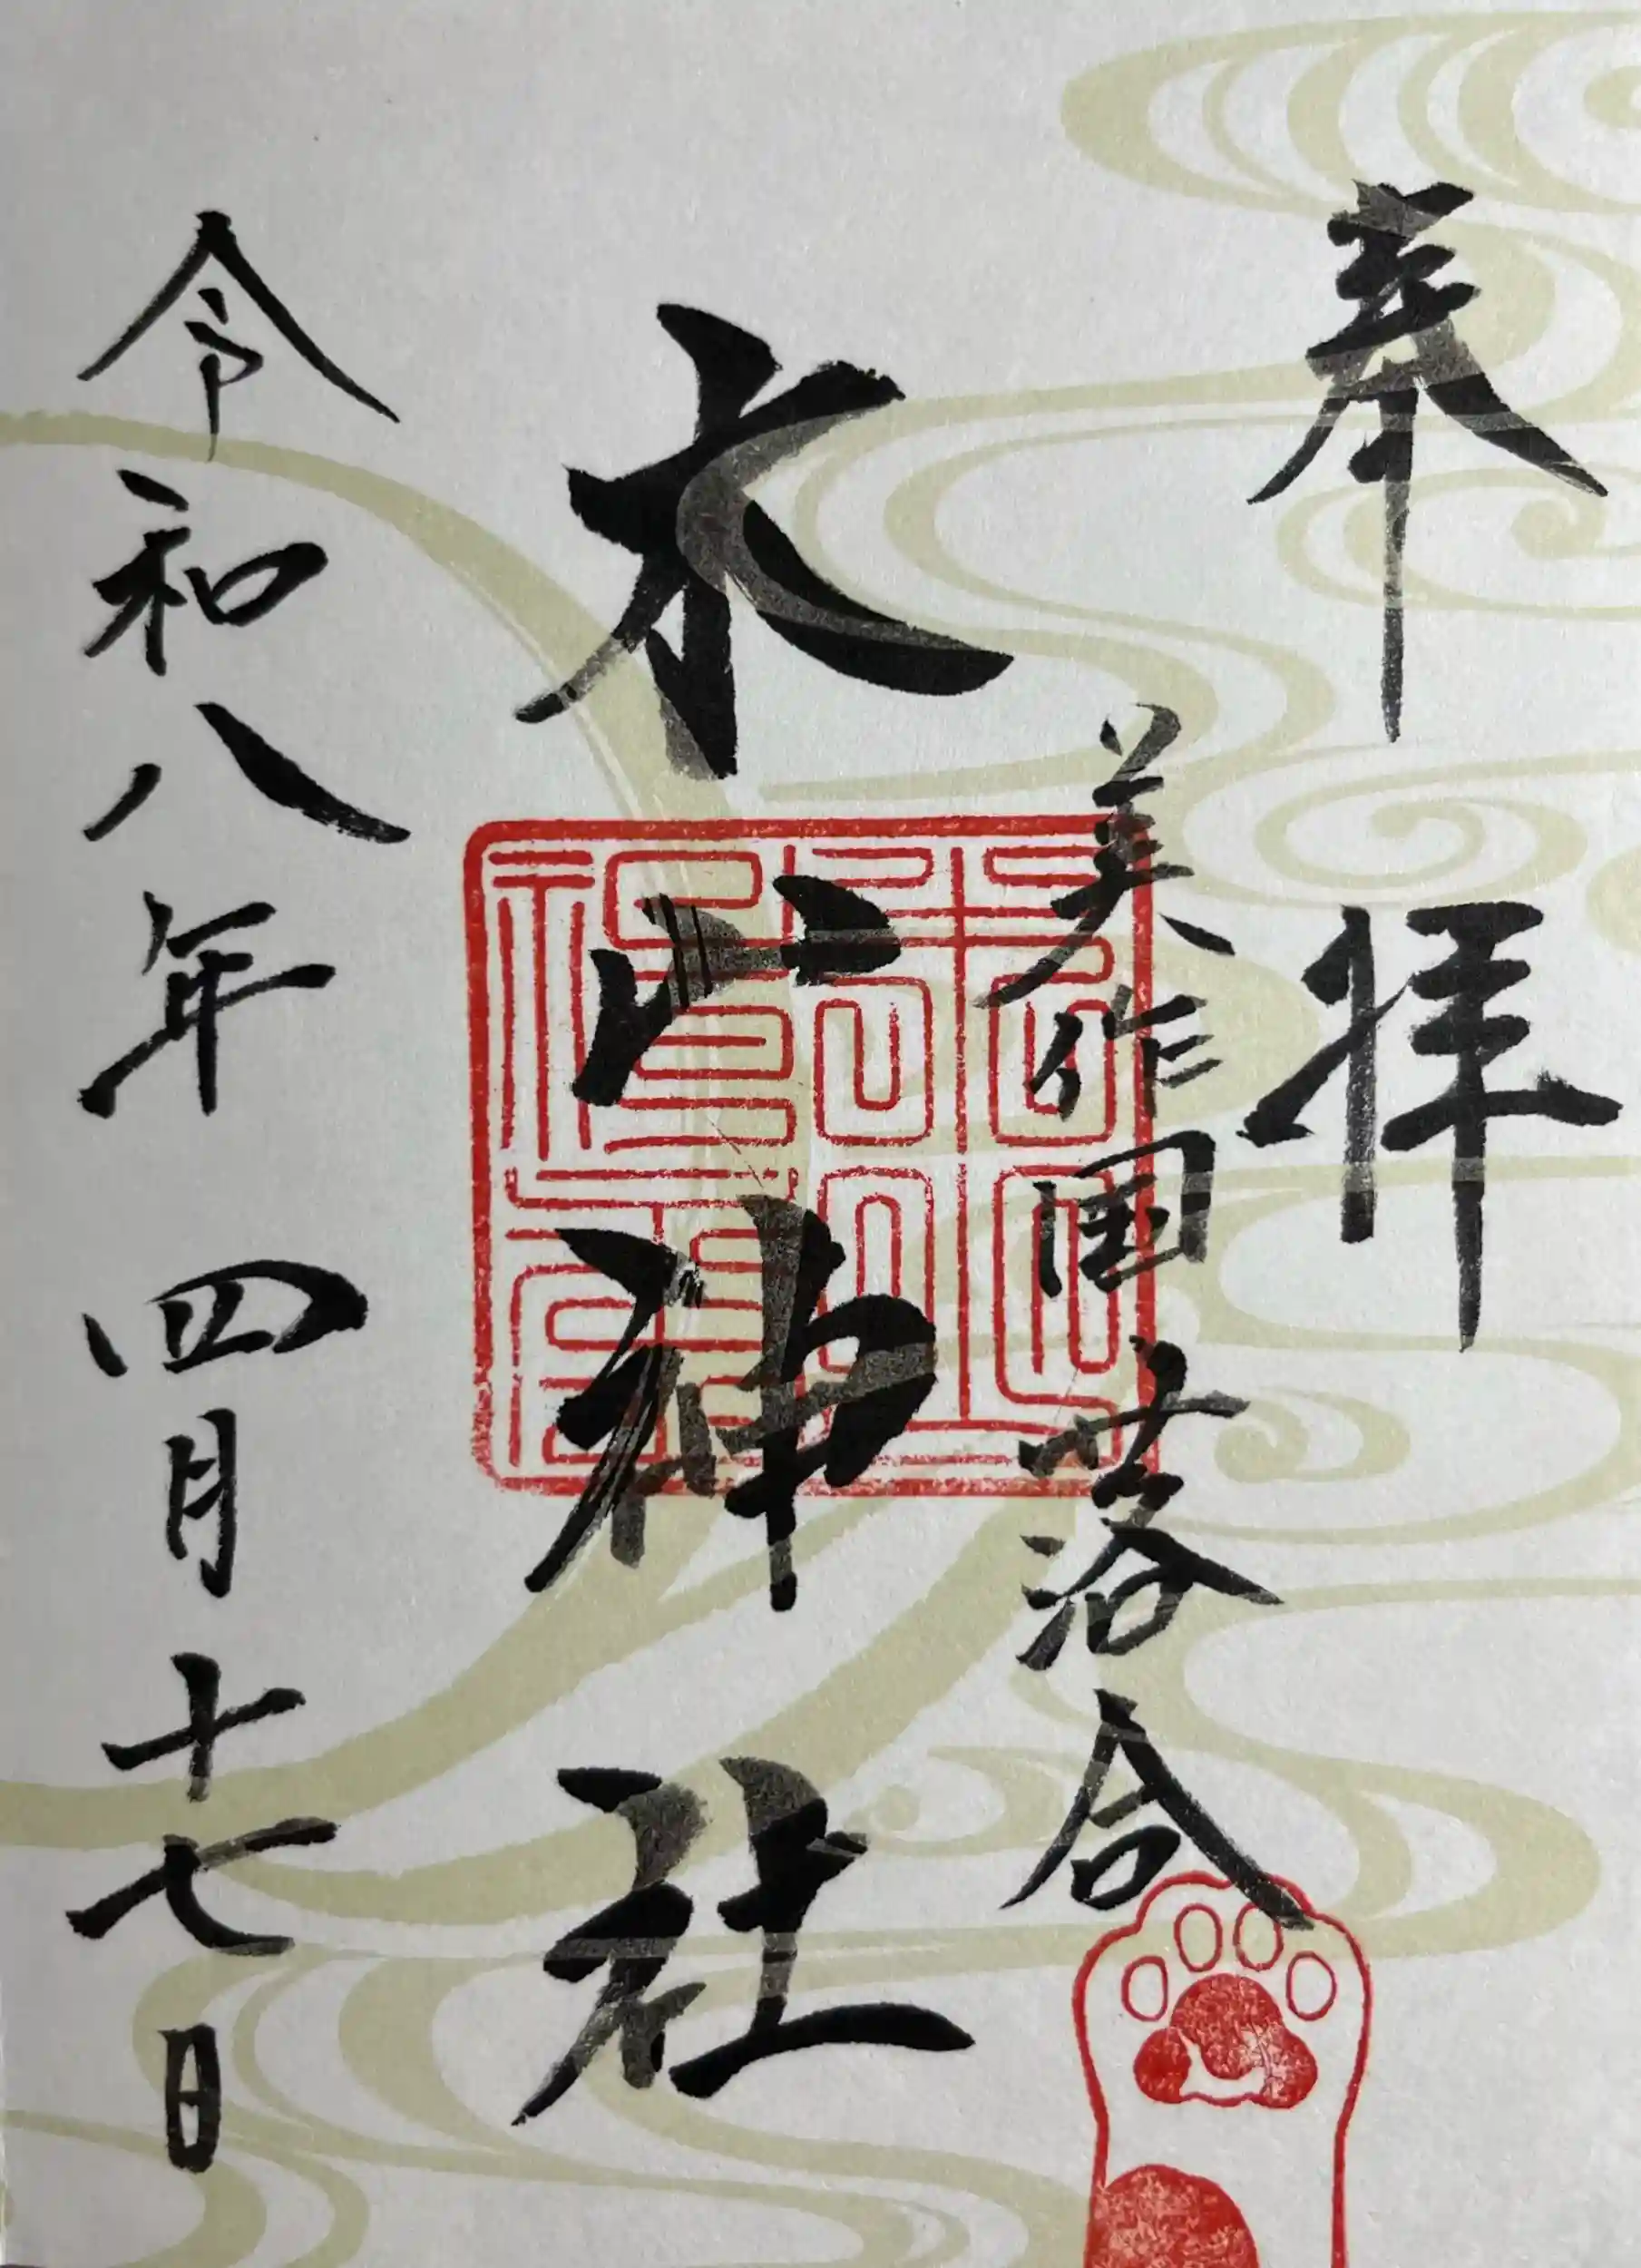 奉拝
美作国落合
木山神社
令和八年四月十七日